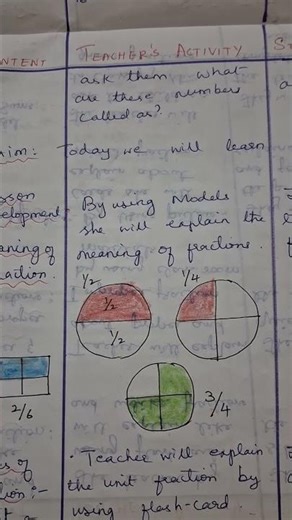 CONTENT TEACHER'S ACTIVITY S
ask them what
are these numbers
called as?
aim: Today we will learn
sson
velopment: By using Models
she will explain the
aning of meaning of fractions.
action.
1/2 1/4
1/2
1/2
2/6 3/4
es of . Teacher will explain
ion:- the unit fraction by
using flash-card.